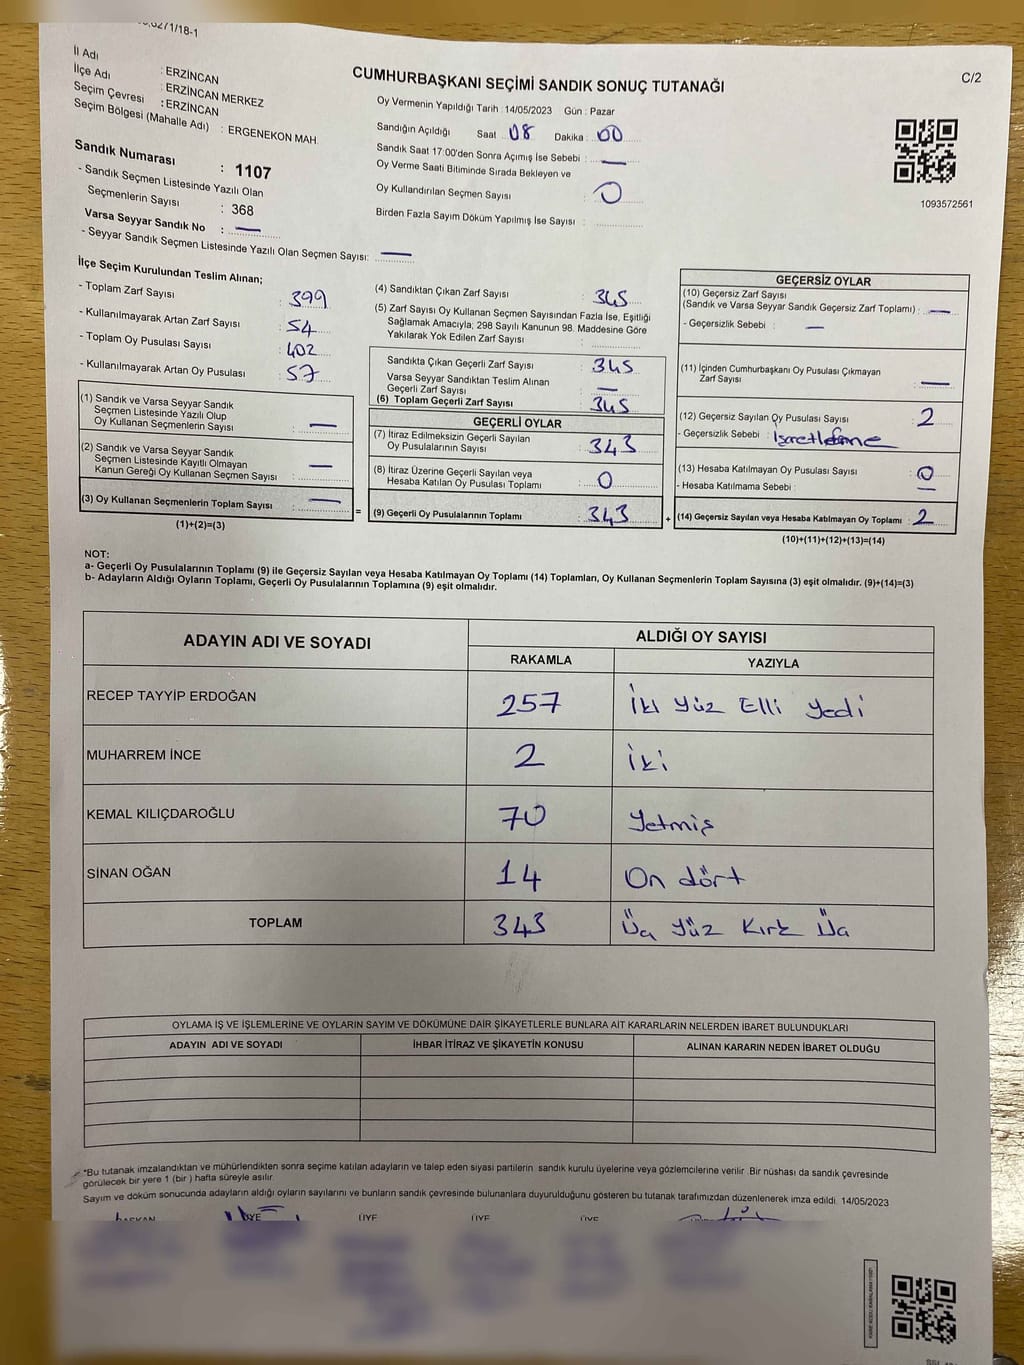 CUMHURBAŞKANI SEÇİMİ SANDIK SONUÇ TUTANAĞI
C/2
İl Adı : ERZİNCAN
İlçe Adı : ERZİNCAN MERKEZ
Seçim Çevresi : ERZİNCAN
Seçim Bölgesi (Mahalle Adı) : ERGENEKON MAH.
Sandık Numarası : 1107
- Sandık Seçmen Listesinde Yazılı Olan
Seçmenlerin Sayısı : 368
Varsa Seyyar Sandık No : —
- Seyyar Sandık Seçmen Listesinde Yazılı Olan Seçmen Sayısı: —
Oy Vermenin Yapıldığı Tarih : 14/05/2023 Gün : Pazar
Sandığın Açıldığı Saat : 08 Dakika : 00
Sandık Saat 17:00'den Sonra Açımış İse Sebebi : —
Oy Verme Saati Bitiminde Sırada Bekleyen ve
Oy Kullandırılan Seçmen Sayısı : 0
Birden Fazla Sayım Döküm Yapılmış İse Sayısı :
1093572561
İlçe Seçim Kurulundan Teslim Alınan;
- Toplam Zarf Sayısı : 399
- Kullanılmayarak Artan Zarf Sayısı : 54
- Toplam Oy Pusulası Sayısı : 402
- Kullanılmayarak Artan Oy Pusulası : 57
(1) Sandık ve Varsa Seyyar Sandık
Seçmen Listesinde Yazılı Olup
Oy Kullanan Seçmenlerin Sayısı : —
(2) Sandık ve Varsa Seyyar Sandık
Seçmen Listesinde Kayıtlı Olmayan
Kanun Gereği Oy Kullanan Seçmen Sayısı : —
(3) Oy Kullanan Seçmenlerin Toplam Sayısı : —
(1)+(2)=(3)
(4) Sandıktan Çıkan Zarf Sayısı : 345
(5) Zarf Sayısı Oy Kullanan Seçmen Sayısından Fazla İse, Eşitliği
Sağlamak Amacıyla; 298 Sayılı Kanunun 98. Maddesine Göre
Yakılarak Yok Edilen Zarf Sayısı :
Sandıkta Çıkan Geçerli Zarf Sayısı : 345
Varsa Seyyar Sandıktan Teslim Alınan
Geçerli Zarf Sayısı : —
(6) Toplam Geçerli Zarf Sayısı : 345
GEÇERLİ OYLAR
(7) İtiraz Edilmeksizin Geçerli Sayılan
Oy Pusulalarının Sayısı : 343
(8) İtiraz Üzerine Geçerli Sayılan veya
Hesaba Katılan Oy Pusulası Toplamı : 0
= (9) Geçerli Oy Pusulalarının Toplamı : 343
GEÇERSİZ OYLAR
(10) Geçersiz Zarf Sayısı
(Sandık ve Varsa Seyyar Sandık Geçersiz Zarf Toplamı) : —
- Geçersizlik Sebebi : —
(11) İçinden Cumhurbaşkanı Oy Pusulası Çıkmayan
Zarf Sayısı : —
(12) Geçersiz Sayılan Oy Pusulası Sayısı : 2
- Geçersizlik Sebebi : İşaretleme
(13) Hesaba Katılmayan Oy Pusulası Sayısı : 0
- Hesaba Katılmama Sebebi : —
+ (14) Geçersiz Sayılan veya Hesaba Katılmayan Oy Toplamı : 2
(10)+(11)+(12)+(13)=(14)
NOT:
a- Geçerli Oy Pusulalarının Toplamı (9) ile Geçersiz Sayılan veya Hesaba Katılmayan Oy Toplamı (14) Toplamları, Oy Kullanan Seçmenlerin Toplam Sayısına (3) eşit olmalıdır. (9)+(14)=(3)
b- Adayların Aldığı Oyların Toplamı, Geçerli Oy Pusulalarının Toplamına (9) eşit olmalıdır.
ADAYIN ADI VE SOYADI ALDIĞI OY SAYISI
RAKAMLA YAZIYLA
RECEP TAYYİP ERDOĞAN 257 İki Yüz Elli Yedi
MUHARREM İNCE 2 İki
KEMAL KILIÇDAROĞLU 70 Yetmiş
SİNAN OĞAN 14 On dört
TOPLAM 343 Üç Yüz Kırk Üç
OYLAMA İŞ VE İŞLEMLERİNE VE OYLARIN SAYIM VE DÖKÜMÜNE DAİR ŞİKAYETLERLE BUNLARA AİT KARARLARIN NELERDEN İBARET BULUNDUKLARI
ADAYIN ADI VE SOYADI İHBAR İTİRAZ VE ŞİKAYETİN KONUSU ALINAN KARARIN NEDEN İBARET OLDUĞU
*Bu tutanak imzalandıktan ve mühürlendikten sonra seçime katılan adayların ve talep eden siyasi partilerin sandık kurulu üyelerine veya gözlemcilerine verilir. Bir nüshası da sandık çevresinde
görülecek bir yere 1 (bir ) hafta süreyle asılır.
Sayım ve döküm sonucunda adayların aldığı oyların sayılarını ve bunların sandık çevresinde bulunanlara duyurulduğunu gösteren bu tutanak tarafımızdan düzenlenerek imza edildi. 14/05/2023
BAŞKAN ÜYE ÜYE ÜYE ÜYE